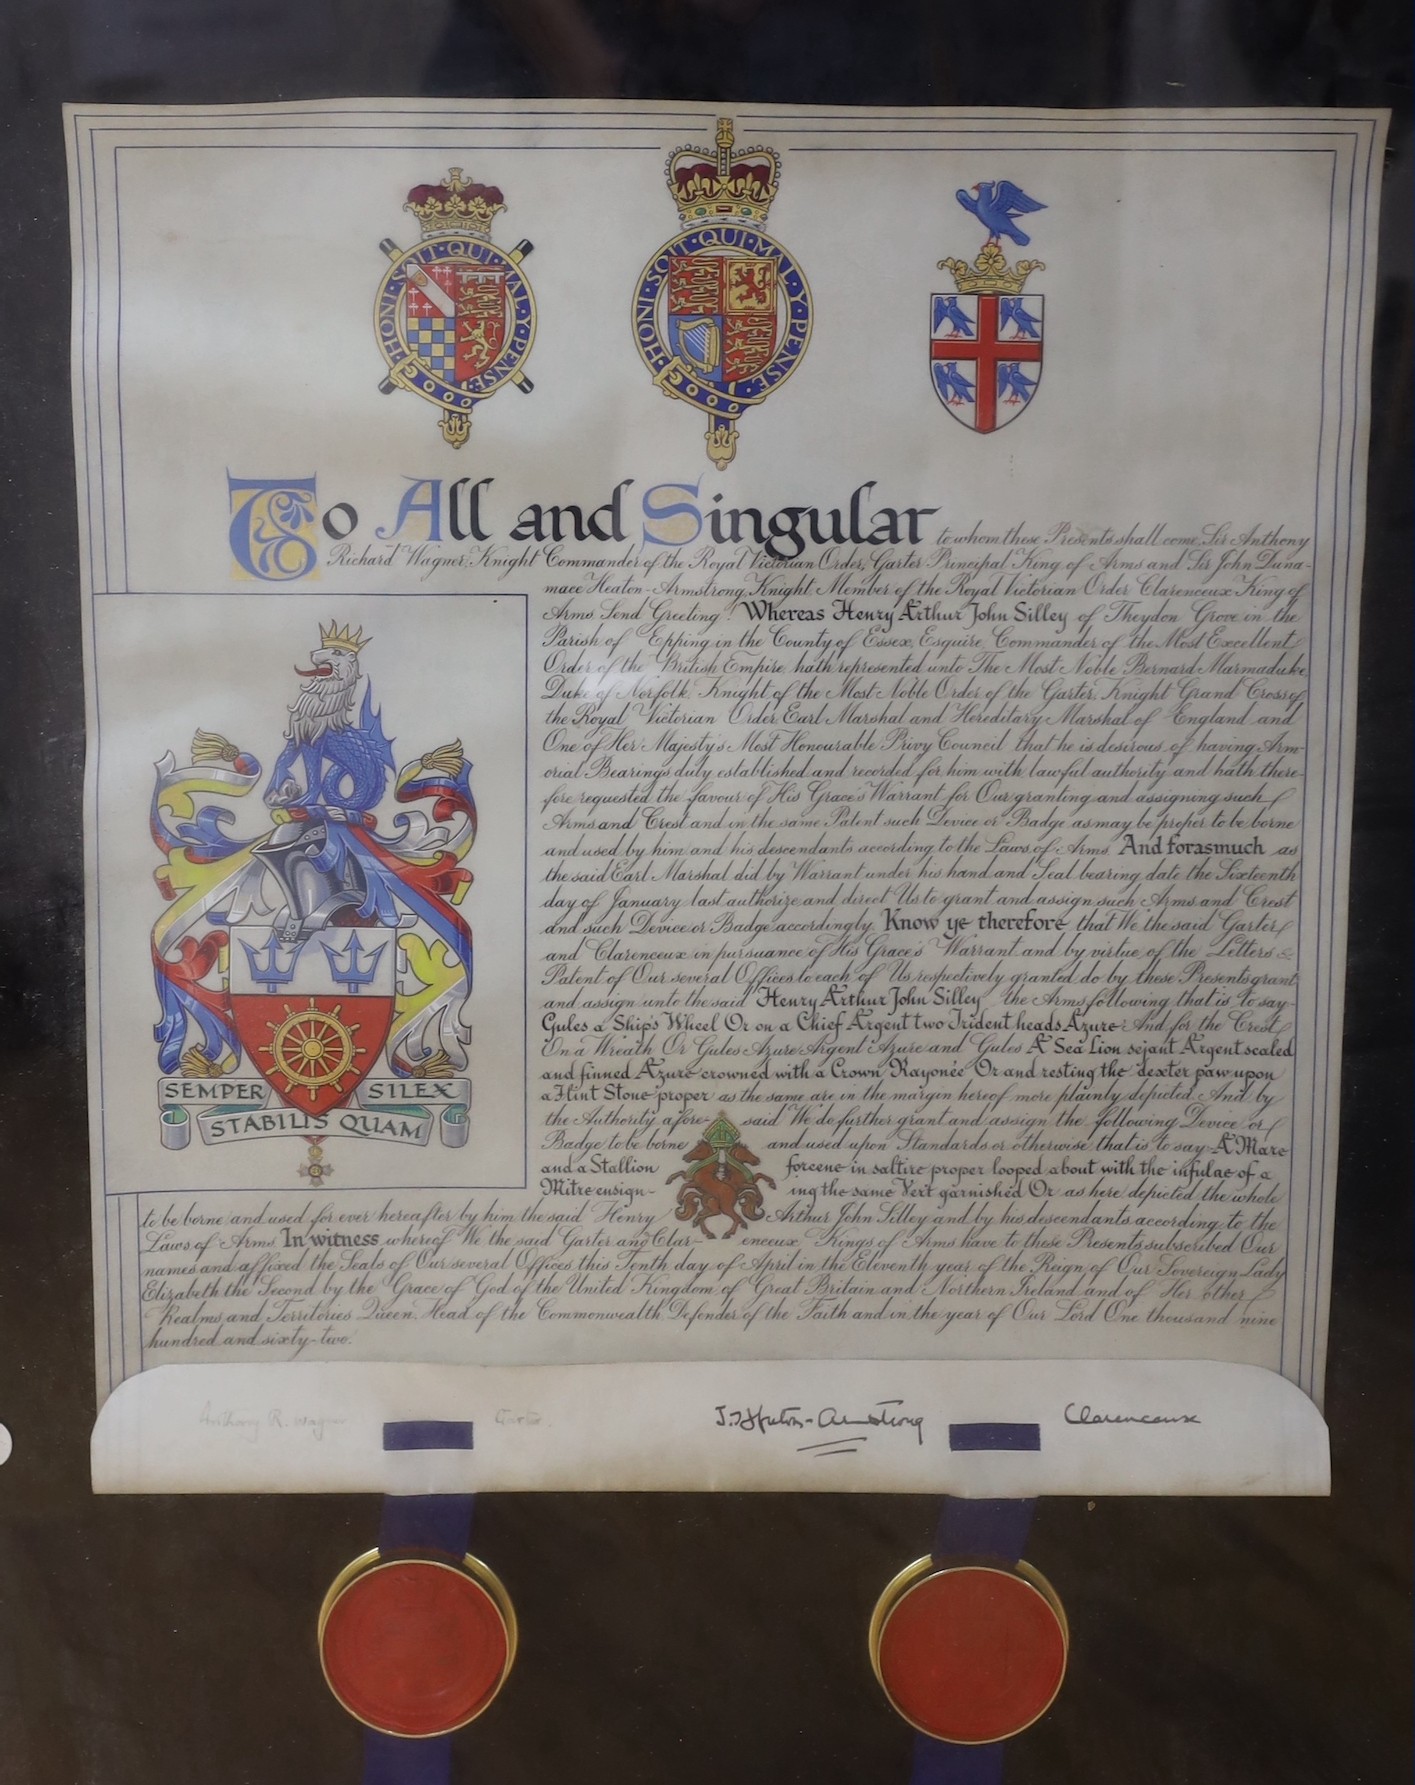 HONI·SOIT·QUI·MAL·Y·PENSE
HONI·SOIT·QUI·MAL·Y·PENSE
To All and Singular to whom these Presents shall come, Sir Anthony
Richard Wagner, Knight Commander of the Royal Victorian Order, Garter Principal King of Arms and Sir John Duna-
mace Heaton-Armstrong, Knight, Member of the Royal Victorian Order Clarenceux King of
Arms Send Greeting! Whereas Henry Arthur John Silley of Theydon Grove in the
Parish of Epping in the County of Essex, Esquire, Commander of the Most Excellent
Order of the British Empire, hath represented unto The Most Noble Bernard Marmaduke,
Duke of Norfolk, Knight of the Most Noble Order of the Garter, Knight Grand Cross of
the Royal Victorian Order, Earl Marshal and Hereditary Marshal of England and
One of Her Majesty's Most Honourable Privy Council that he is desirous of having Arm-
orial Bearings duly established and recorded for him with lawful authority and hath there-
fore requested the favour of His Grace's Warrant for Our granting and assigning such
Arms and Crest and in the same Patent such Device or Badge as may be proper to be borne
and used by him and his descendants according to the Laws of Arms And forasmuch as
the said Earl Marshal did by Warrant under his hand and Seal bearing date the Sixteenth
day of January last authorize and direct Us to grant and assign such Arms and Crest
and such Device or Badge accordingly. Know ye therefore that We the said Garter
and Clarenceux in pursuance of His Grace's Warrant and by virtue of the Letters
Patent of Our several Offices to each of Us respectively granted do by these Presents grant
and assign unto the said Henry Arthur John Silley the Arms following that is to say-
Gules a Ship's Wheel Or on a Chief Argent two Trident heads Azure And for the Crest
On a Wreath Or Gules Azure Argent Azure and Gules A Sea Lion sejant Argent scaled
and finned Azure crowned with a Crown Rayonée Or and resting the dexter paw upon
a Flint Stone proper as the same are in the margin hereof more plainly depicted And by
the Authority afore- said We do further grant and assign the following Device or
Badge to be borne and used upon Standards or otherwise that is to say A Mare
and a Stallion forcene in saltire proper looped about with the infulae of a
Mitre ensign- ing the same Vert garnished Or as here depicted the whole
SEMPER SILEX
STABILIS QUAM
to be borne and used for ever hereafter by him the said Henry Arthur John Silley and by his descendants according to the
Laws of Arms In witness whereof We the said Garter and Clar- enceux Kings of Arms have to these Presents subscribed Our
names and affixed the Seals of Our several Offices this Tenth day of April in the Eleventh year of the Reign of Our Sovereign Lady
Elizabeth the Second by the Grace of God of the United Kingdom of Great Britain and Northern Ireland and of Her other
Realms and Territories Queen, Head of the Commonwealth, Defender of the Faith and in the year of Our Lord One thousand nine
hundred and sixty-two.
Anthony R. Wagner Garter. J.D. Heaton-Armstrong Clarenceux